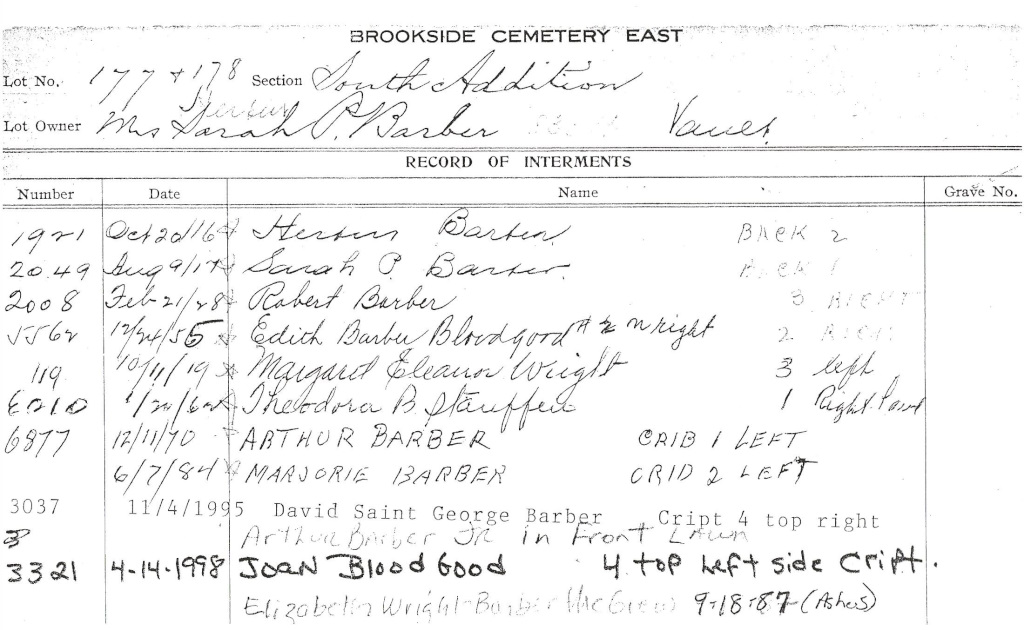 BROOKSIDE CEMETERY EAST
Lot No. 177 + 178 Section South Addition
Lot Owner Mrs Sarah P. Barber
RECORD OF INTERMENTS
Number Date Name Grave No.
1921 Oct 20/16 Barber BACK 2
2049 Aug 9/17 Sarah P. Barber BACK 1
2008 Feb 21/28 Robert Barber 3 RIGHT
5562 12/24/55 Edith Barber Bloodgood # 2 on right 2
119 10/11/19 Margaret Eleanor Wright 3 left
6210 Theodora B Stauffen 1 Right
6877 12/11/70 ARTHUR BARBER CRIB 1 LEFT
6/7/84 MARJORIE BARBER CRID 2 LEFT
3037 11/4/1995 David Saint George Barber Cript 4 top right
Arthur Barber JR in Front LAWN
3321 4-14-1998 JOAN BlooD GooD 4 top Left side Cript.
Elizabeth Wright-Barber 9-18-87 (Ashes)